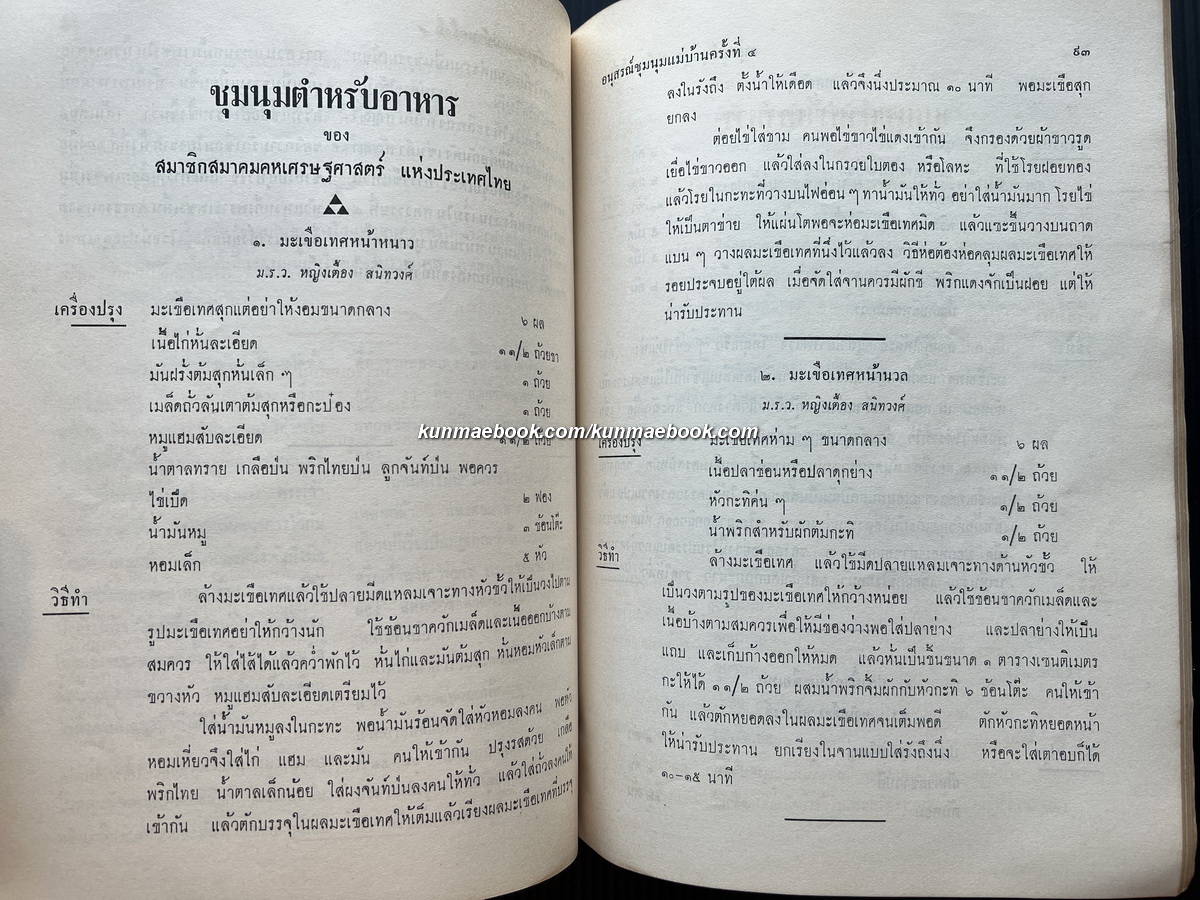 ชุมนุมตำหรับอาหาร
ของ
สมาชิกสมาคมคหเศรษฐศาสตร์ แห่งประเทศไทย
๑. มะเขือเทศหน้าหนาว
ม.ร.ว. หญิงเตื้อง สนิทวงศ์
เครื่องปรุง มะเขือเทศสุกแต่อย่าให้งอมขนาดกลาง ๖ ผล
เนื้อไก่หั่นละเอียด ๑ ๑/๒ ถ้วยชา
มันฝรั่งต้มสุกหั่นเล็ก ๆ ๑ ถ้วย
เมล็ดถั่วลันเตาต้มสุกหรือกะป๋อง ๑ ถ้วย
หมูแฮมสับละเอียด ๑ ๑/๒ ถ้วย
น้ำตาลทราย เกลือป่น พริกไทยป่น ลูกจันท์ป่น พอควร
ไข่เป็ด ๒ ฟอง
น้ำมันหมู ๓ ช้อนโต๊ะ
หอมเล็ก ๕ หัว
วิธีทำ ล้างมะเขือเทศแล้วใช้ปลายมีดแหลมเจาะทางหัวขั้วให้เป็นวงไปตาม
รูปมะเขือเทศอย่าให้กว้างนัก ใช้ช้อนชาควักเมล็ดและเนื้อออกบ้างตาม
สมควร ให้ใส่ไส้ได้แล้วคว่ำพักไว้ หั่นไก่และมันต้มสุก หั่นหอมหัวเล็กตาม
ขวางหัว หมูแฮมสับละเอียดเตรียมไว้
ใส่น้ำมันหมูลงในกะทะ พอน้ำมันร้อนจัดใส่หัวหอมลงคน พอหัว
หอมเหี่ยวจึงใส่ไก่ แฮม และมัน คนให้เข้ากัน ปรุงรสด้วย เกลือ
พริกไทย น้ำตาลเล็กน้อย ใส่ผงจันท์ป่นลงคนให้ทั่ว แล้วใส่ถั่วลงคนให้
เข้ากัน แล้วตักบรรจุในผลมะเขือเทศให้เต็มแล้วเรียงผลมะเขือเทศที่บรรจุ
อนุสรณ์ชุมนุมแม่บ้านครั้งที่ ๔ ๙๓
ลงในรังถึง ตั้งน้ำให้เดือด แล้วจึงนึ่งประมาณ ๑๐ นาที พอมะเขือสุก
ยกลง
ต่อยไข่ใส่ชาม คนพอไข่ขาวไข่แดงเข้ากัน จึงกรองด้วยผ้าขาวรูด
เยื่อไข่ขาวออก แล้วใส่ลงในกรวยใบตอง หรือโลหะ ที่ใช้โรยฝอยทอง
แล้วโรยในกะทะที่วางบนไฟอ่อน ๆ ทาน้ำมันให้ทั่ว อย่าใส่น้ำมันมาก โรยไข่
ให้เป็นตาข่าย ให้แผ่นโตพอจะห่อมะเขือเทศมิด แล้วแซะขึ้นวางบนถาด
แบน ๆ วางผลมะเขือเทศที่นึ่งไว้แล้วลง วิธีห่อต้องห่อคลุมผลมะเขือเทศให้
รอยประจบอยู่ใต้ผล เมื่อจัดใส่จานควรมีผักชี พริกแดงจักเป็นฝอย แต่งให้
น่ารับประทาน
๒. มะเขือเทศหน้านวล
ม.ร.ว. หญิงเตื้อง สนิทวงศ์
kunmaebook.com/kunmaebook.com
เครื่องปรุง มะเขือเทศห่าม ๆ ขนาดกลาง ๖ ผล
เนื้อปลาช่อนหรือปลาดุกย่าง ๑ ๑/๒ ถ้วย
หัวกะทิค่น ๆ ๑/๒ ถ้วย
น้ำพริกสำหรับผักต้มกะทิ ๑/๒ ถ้วย
วิธีทำ ล้างมะเขือเทศ แล้วใช้มีดปลายแหลมเจาะทางด้านหัวขั้ว ให้
เป็นวงตามรูปของมะเขือเทศให้กว้างหน่อย แล้วใช้ช้อนชาควักเมล็ดและ
เนื้อบ้างตามสมควรเพื่อให้มีช่องว่างพอใส่ปลาย่าง และปลาย่างให้เป็น
แถบ และเก็บก้างออกให้หมด แล้วหั่นเป็นชิ้นขนาด ๑ ตารางเซนติเมตร
กะให้ได้ ๑ ๑/๒ ถ้วย ผสมน้ำพริกจิ้มผักกับหัวกะทิ ๖ ช้อนโต๊ะ คนให้เข้า
กัน แล้วตักหยอดลงในผลมะเขือเทศจนเต็มพอดี ตักหัวกะทิหยอดหน้า
ให้น่ารับประทาน ยกเรียงในจานแบนใส่รังถึงนึ่ง หรือจะใส่เตาอบก็ได้
๑๐-๑๕ นาที